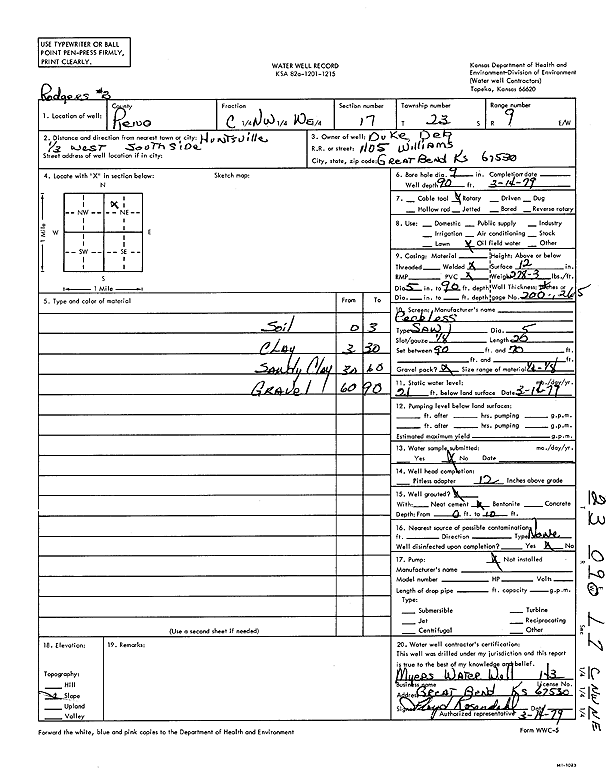 USE TYPEWRITER OR BALL
POINT PEN-PRESS FIRMLY,
PRINT CLEARLY.
WATER WELL RECORD
KSA 82a-1201-1215
Kansas Department of Health and
Environment-Division of Environment
(Water well Contractors)
Topeka, Kansas 66620
Rodgers #3
1. Location of well: County Reno Fraction C 1/4 NW 1/4 NE 1/4 Section number 17 Township number T 23 S Range number R 9 E/W
2. Distance and direction from nearest town or city: Huntsville
1/3 West South side
Street address of well location if in city:
3. Owner of well: Duke Delg
R.R. or street: 1105 Williams
City, state, zip code: Great Bend Ks 67530
4. Locate with "X" in section below: Sketch map:
N
X
NW NE
W E
SW SE
S
1 Mile
1 Mile
6. Bore hole dia. 9 in. Completion date
Well depth 90 ft. 3-14-79
7. Cable tool X Rotary Driven Dug
Hollow rod Jetted Bored Reverse rotary
8. Use: Domestic Public supply Industry
Irrigation Air conditioning Stock
Lawn X Oil field water Other
9. Casing: Material Height: Above or below
Threaded Welded X Surface 12 in.
RMP PVC X Weight 278-3 lbs./ft.
Dia. 5 in. to 90 ft. depth Wall Thickness: inches or
Dia. in. to ft. depth gage No. 200-.265
5. Type and color of material From To
Soil 0 3
Clay 3 30
Sandy Clay 30 60
Gravel 60 90
10. Screen: Manufacturer's name
Peerless
Type Saw Dia. 5
Slot/gauze 1/8 Length 20
Set between 90 ft. and 70 ft.
ft. and ft.
Gravel pack? X Size range of material 1/4-1/8
11. Static water level: mo./day/yr.
21 ft. below land surface Date 3-14-79
12. Pumping level below land surfaces:
ft. after hrs. pumping g.p.m.
ft. after hrs. pumping g.p.m.
Estimated maximum yield g.p.m.
13. Water sample submitted: mo./day/yr.
Yes X No Date
14. Well head completion:
Pitless adapter 12 Inches above grade
15. Well grouted? X
With: Neat cement X Bentonite Concrete
Depth: From 0 ft. to 10 ft.
16. Nearest source of possible contamination:
ft. Direction Type None
Well disinfected upon completion? Yes X No
17. Pump: X Not installed
Manufacturer's name
Model number HP Volts
Length of drop pipe ft. capacity g.p.m.
Type:
Submersible Turbine
Jet Reciprocating
Centrifugal Other
(Use a second sheet if needed)
18. Elevation:
19. Remarks:
Topography:
Hill
X Slope
Upland
Valley
20. Water well contractor's certification:
This well was drilled under my jurisdiction and this report
is true to the best of my knowledge and belief.
Myers Water Well 143
Business name License No.
Address Great Bend Ks 67530
Signed Floyd Rosendahl Date 3-14-79
Authorized representative
Forward the white, blue and pink copies to the Department of Health and Environment
Form WWC-5
T 23 R 09 W Sec 17 C NW NE
1/4 1/4 1/4